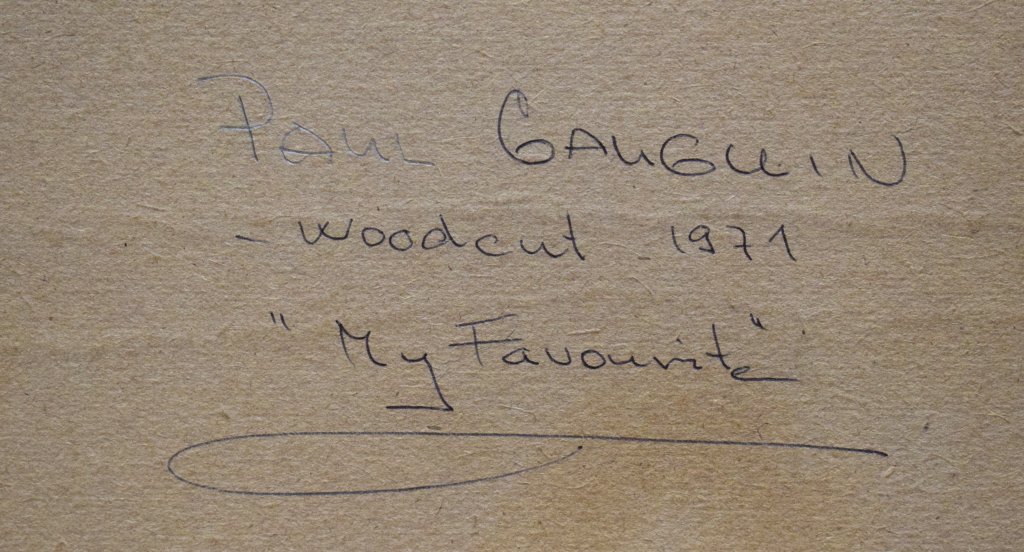 PAUL GAUGUIN
- Woodcut 1971
"My Favourite"